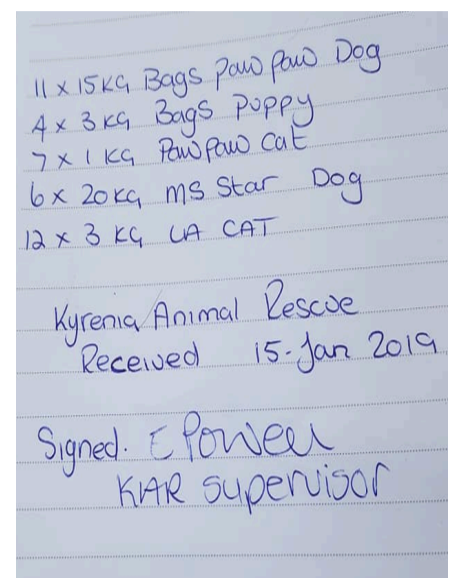 11 x 15KG Bags Paw Paw Dog
4 x 3 KG Bags Puppy
7 x 1 KG Paw Paw Cat
6 x 20KG MS Star Dog
12 x 3 KG LA CAT
Kyrenia Animal Rescue
Received 15-Jan 2019
Signed. E Powell
KAR supervisor